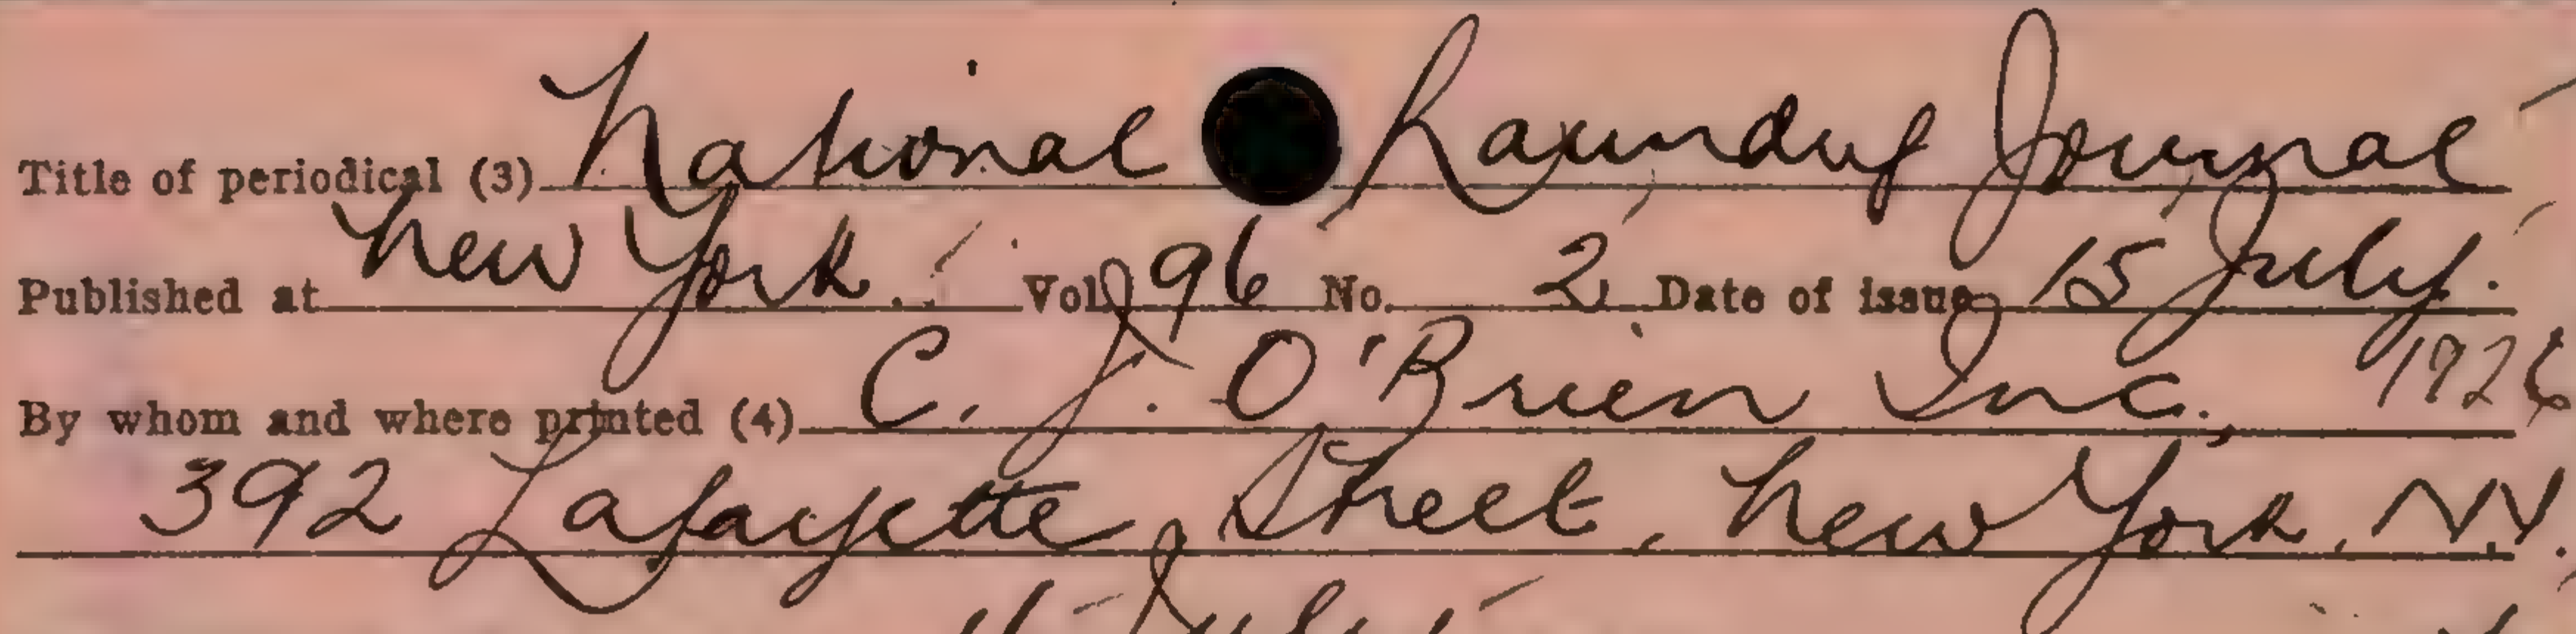 Title of periodical (3) National Laundry Journal
Published at New York. Vol. 96 No. 2 Date of issue 15 July.
1926
By whom and where printed (4) C. J. O'Brien Inc.,
392 Lafayette Street, New York, N.Y.
July